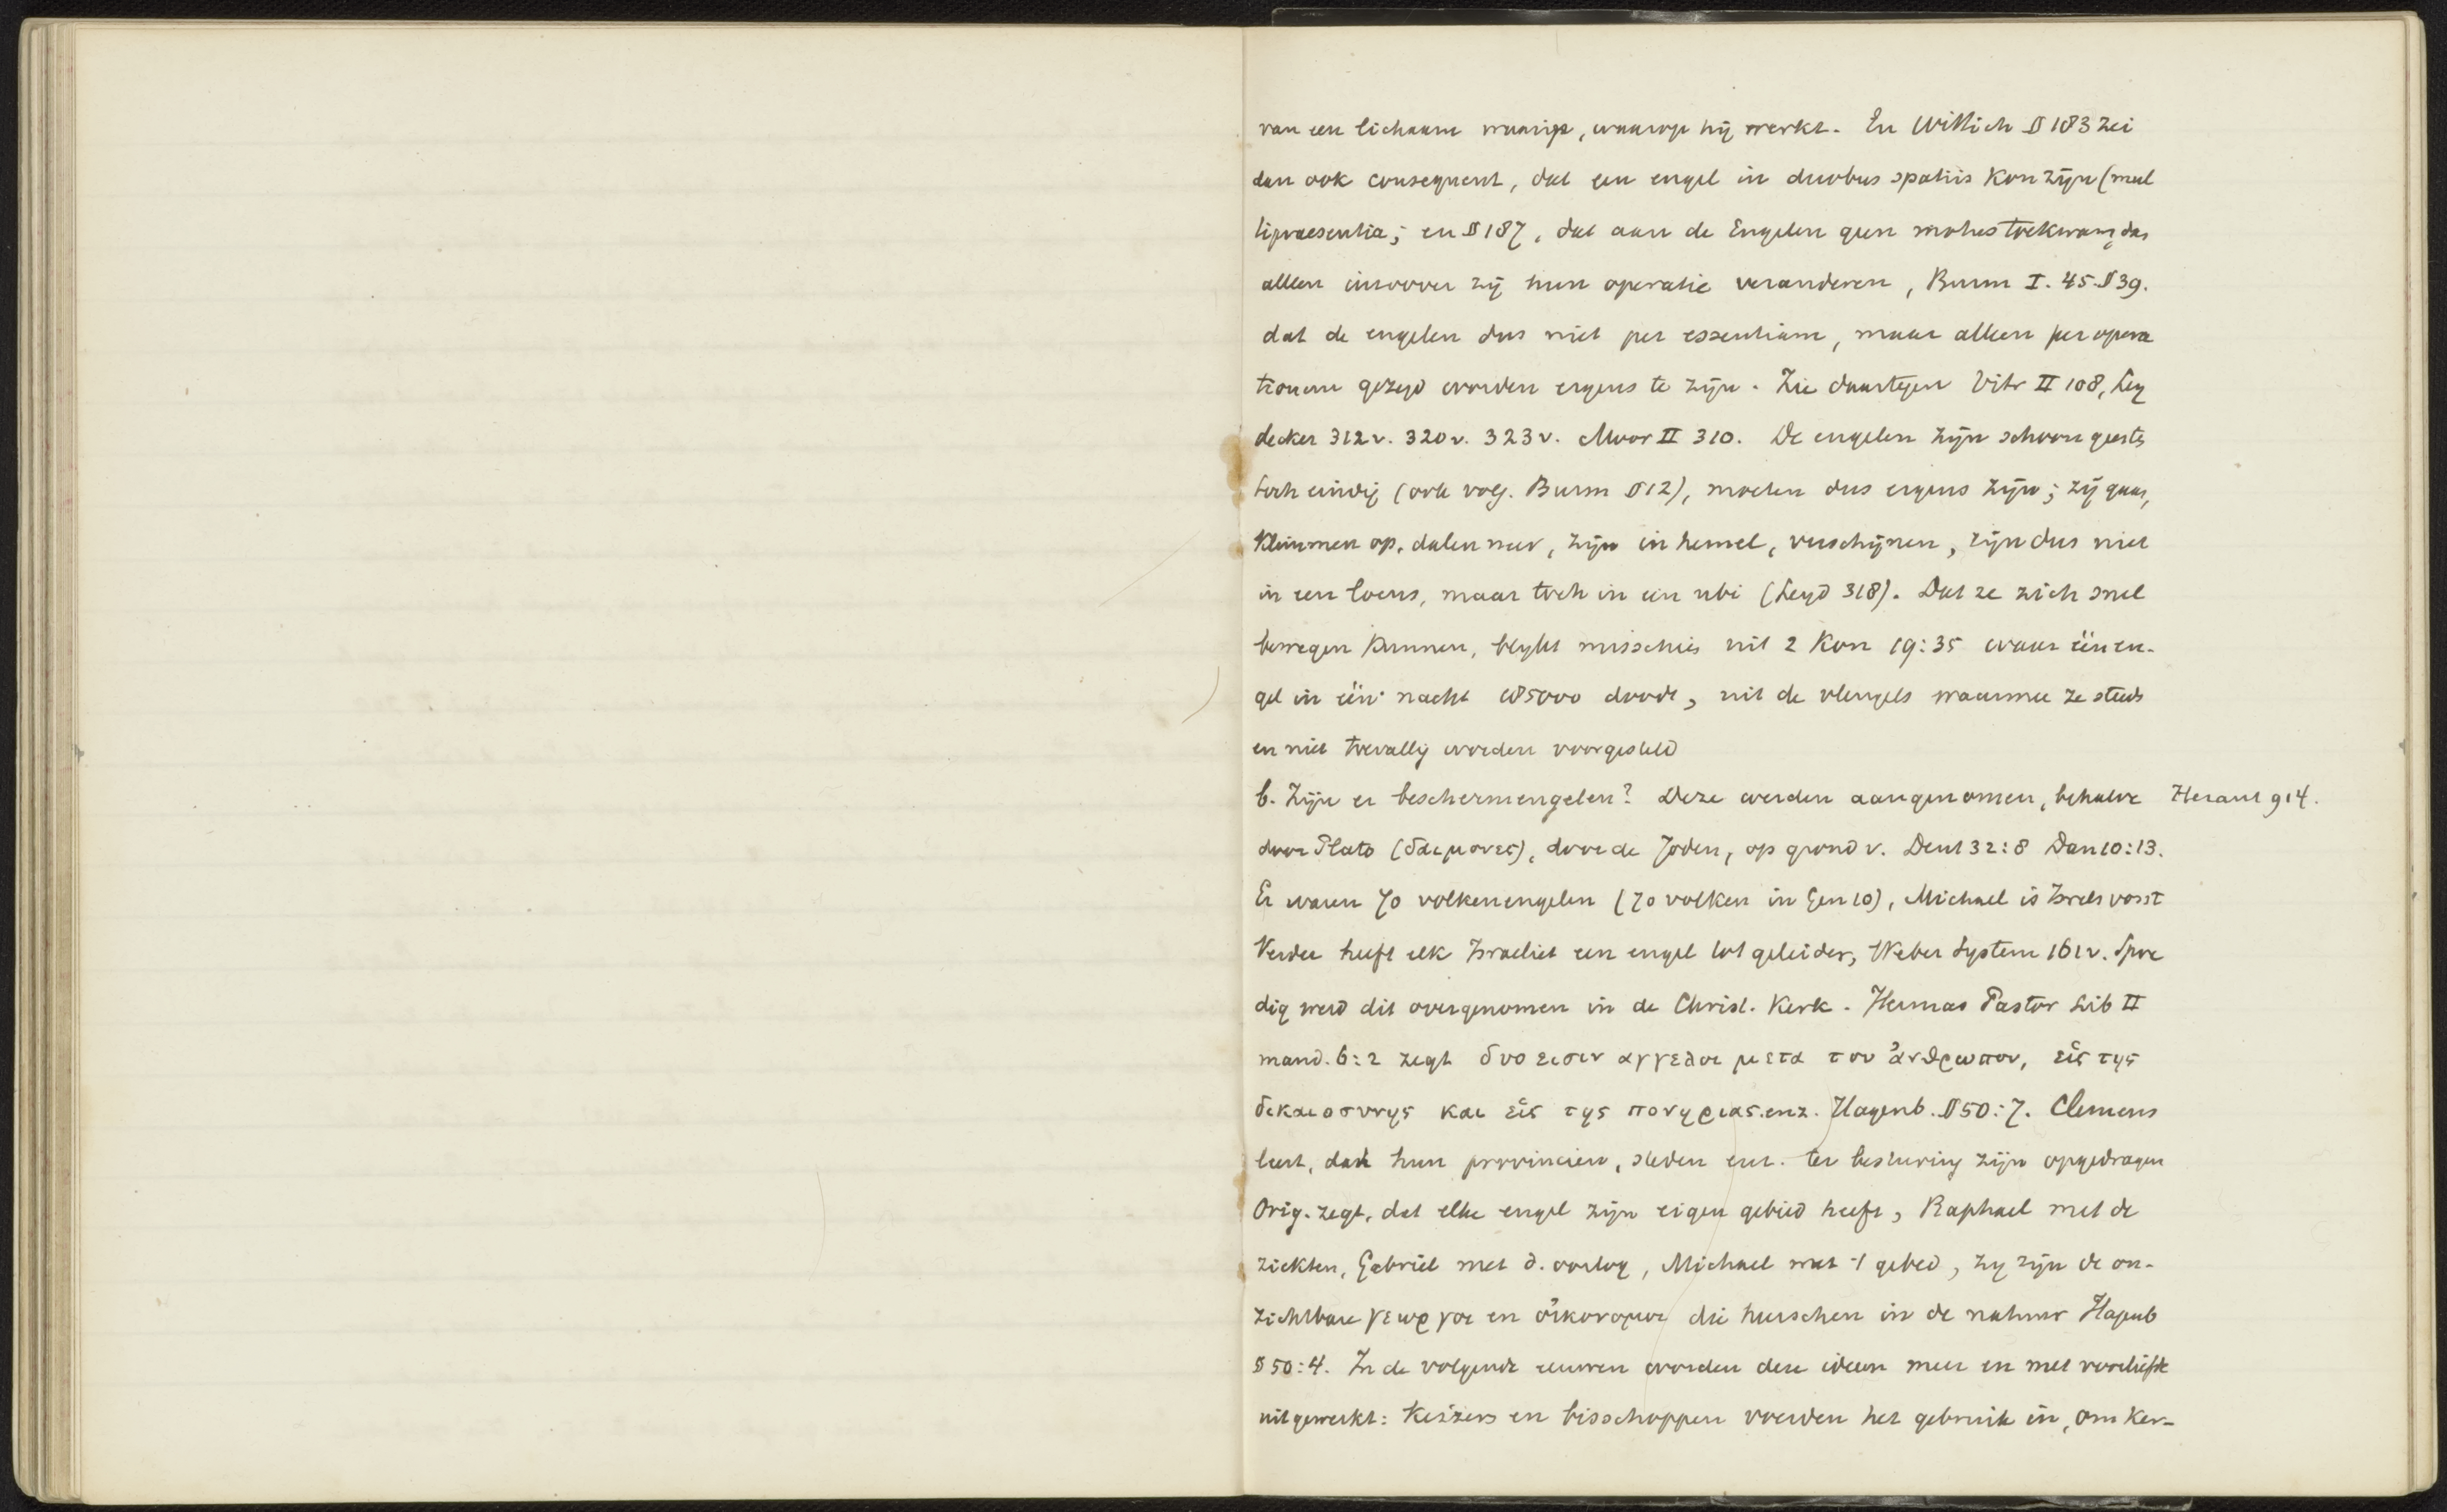 van een lichaam waarin, waarop hij werkt. En Wittich § 183 zei
dan ook consequent, dat een engel in duobus spatiis kon zijn (mul
tipraesentia; en § 187, dat aan de Engelen geen motus toekwam, dan
alleen inzoover zij hun operatie veranderen, Burm I. 45 § 39.
dat de engelen dus niet per essentiam, maar alleen per opera
tionem gezegd worden ergens te zijn. Zie daartegen Vitr II 108, Ley
decker 312v. 320v. 323v. Moor II 310. De engelen zijn schoon geesten
toch eindig (ook volg. Burm § 12), moeten dus ergens zijn; zij gaan,
klimmen op, dalen neer, zijn in hemel, verschijnen, zijn dus niet
in een locus, maar toch in een ubi (Leyd 318). Dat ze zich snel
bewegen kunnen, blijkt misschien uit 2 Kon 19:35 waar één en-
gel in één nacht 185000 doodt, uit de vleugels waarmee ze steeds
en niet toevallig worden voorgesteld
b. Zijn er beschermengelen? Deze werden aangenomen, behalve
Heraut 914.
door Plato (δαιμονες), door de Joden, op grond v. Deut 32:8 Dan 10:13.
Er waren 70 volkenengelen (70 volken in Gen 10), Michael is Israels vorst
Verder heeft elk Israeliet een engel tot geleider, Weber System 161v. Spoe
dig werd dit overgenomen in de Christ. Kerk. Hermas Pastor Lib II
mand. 6:2 zegt δυο εισιν αγγελοι μετα του ἀνθρωπου, εἷς της
δικαιοσυνης και εἷς της πονηριας. enz. Hagenb. § 50:7. Clemens
leert, dat hun provincien, steden enz. ter besturing zijn opgedragen
Orig. zegt, dat elke engel zijn eigen gebied heeft, Raphael met de
ziekten, Gabriel met d. oorlog, Michael met 't gebed, zij zijn de on-
zichtbare γεωργοι en οἰκονομοι die heerschen in de natuur Hagenb
§ 50:4. In de volgende eeuwen worden deze ideen meer en met voorliefde
uitgewerkt: Keizers en bisschoppen voerden het gebruik in, om Ker-